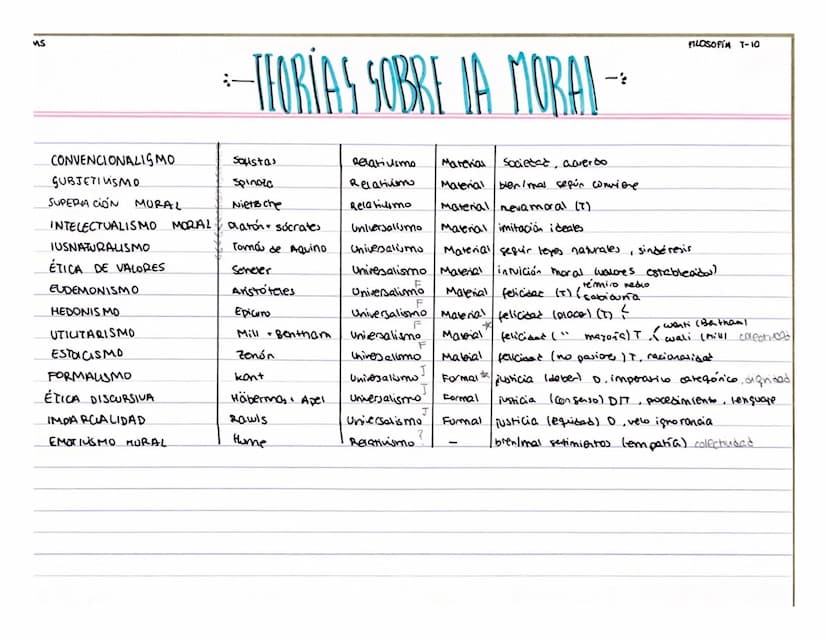 MS
FILOSOFÍA T-10
TEORÍAS SOBRE LA MORAL
CONVENCIONALISMO Sofistas Relativismo Material Societat, acuerdo
SUBJETIVISMO Spinoza Relativismo Material bien/mal según conviene
SUPERACIÓN MORAL Nietzsche Relativismo Material nueva moral (T)
INTELECTUALISMO MORAL Platón + Sócrates Universalismo Material imitación ideales
IUSNATURALISMO Tomás de Aquino Universalismo Material seguir leyes naturales, sindéresis
ÉTICA DE VALORES Universalismo Material intuición moral (valores establecidos)
EUDEMONISMO Aristóteles Universalismo F Material felicidad (T) { término medio / sabiduría
HEDONISMO Epicuro Universalismo F Material felicidad (placer) (T) {
UTILITARISMO Mill + Bentham Universalismo F Material * felicidad ( " mayoría) T { (Bentham) / (Mill colectividad
ESTOICISMO Zenón Universalismo F Material felicidad (no pasiones) T, racionalidad
FORMALISMO Kant Universalismo J Formal * justicia (deber) D, imperativo categórico, dignidad
ÉTICA DISCURSIVA Häbermas + Apel Universalismo J Formal justicia (consenso) DIT, procedimiento, lenguaje
IMPARCIALIDAD Rawls Universalismo J Formal justicia (equidad) D, velo ignorancia
EMOTIVISMO MORAL Hume Relativismo ? – bien/mal setimientos (empatía) colectividad